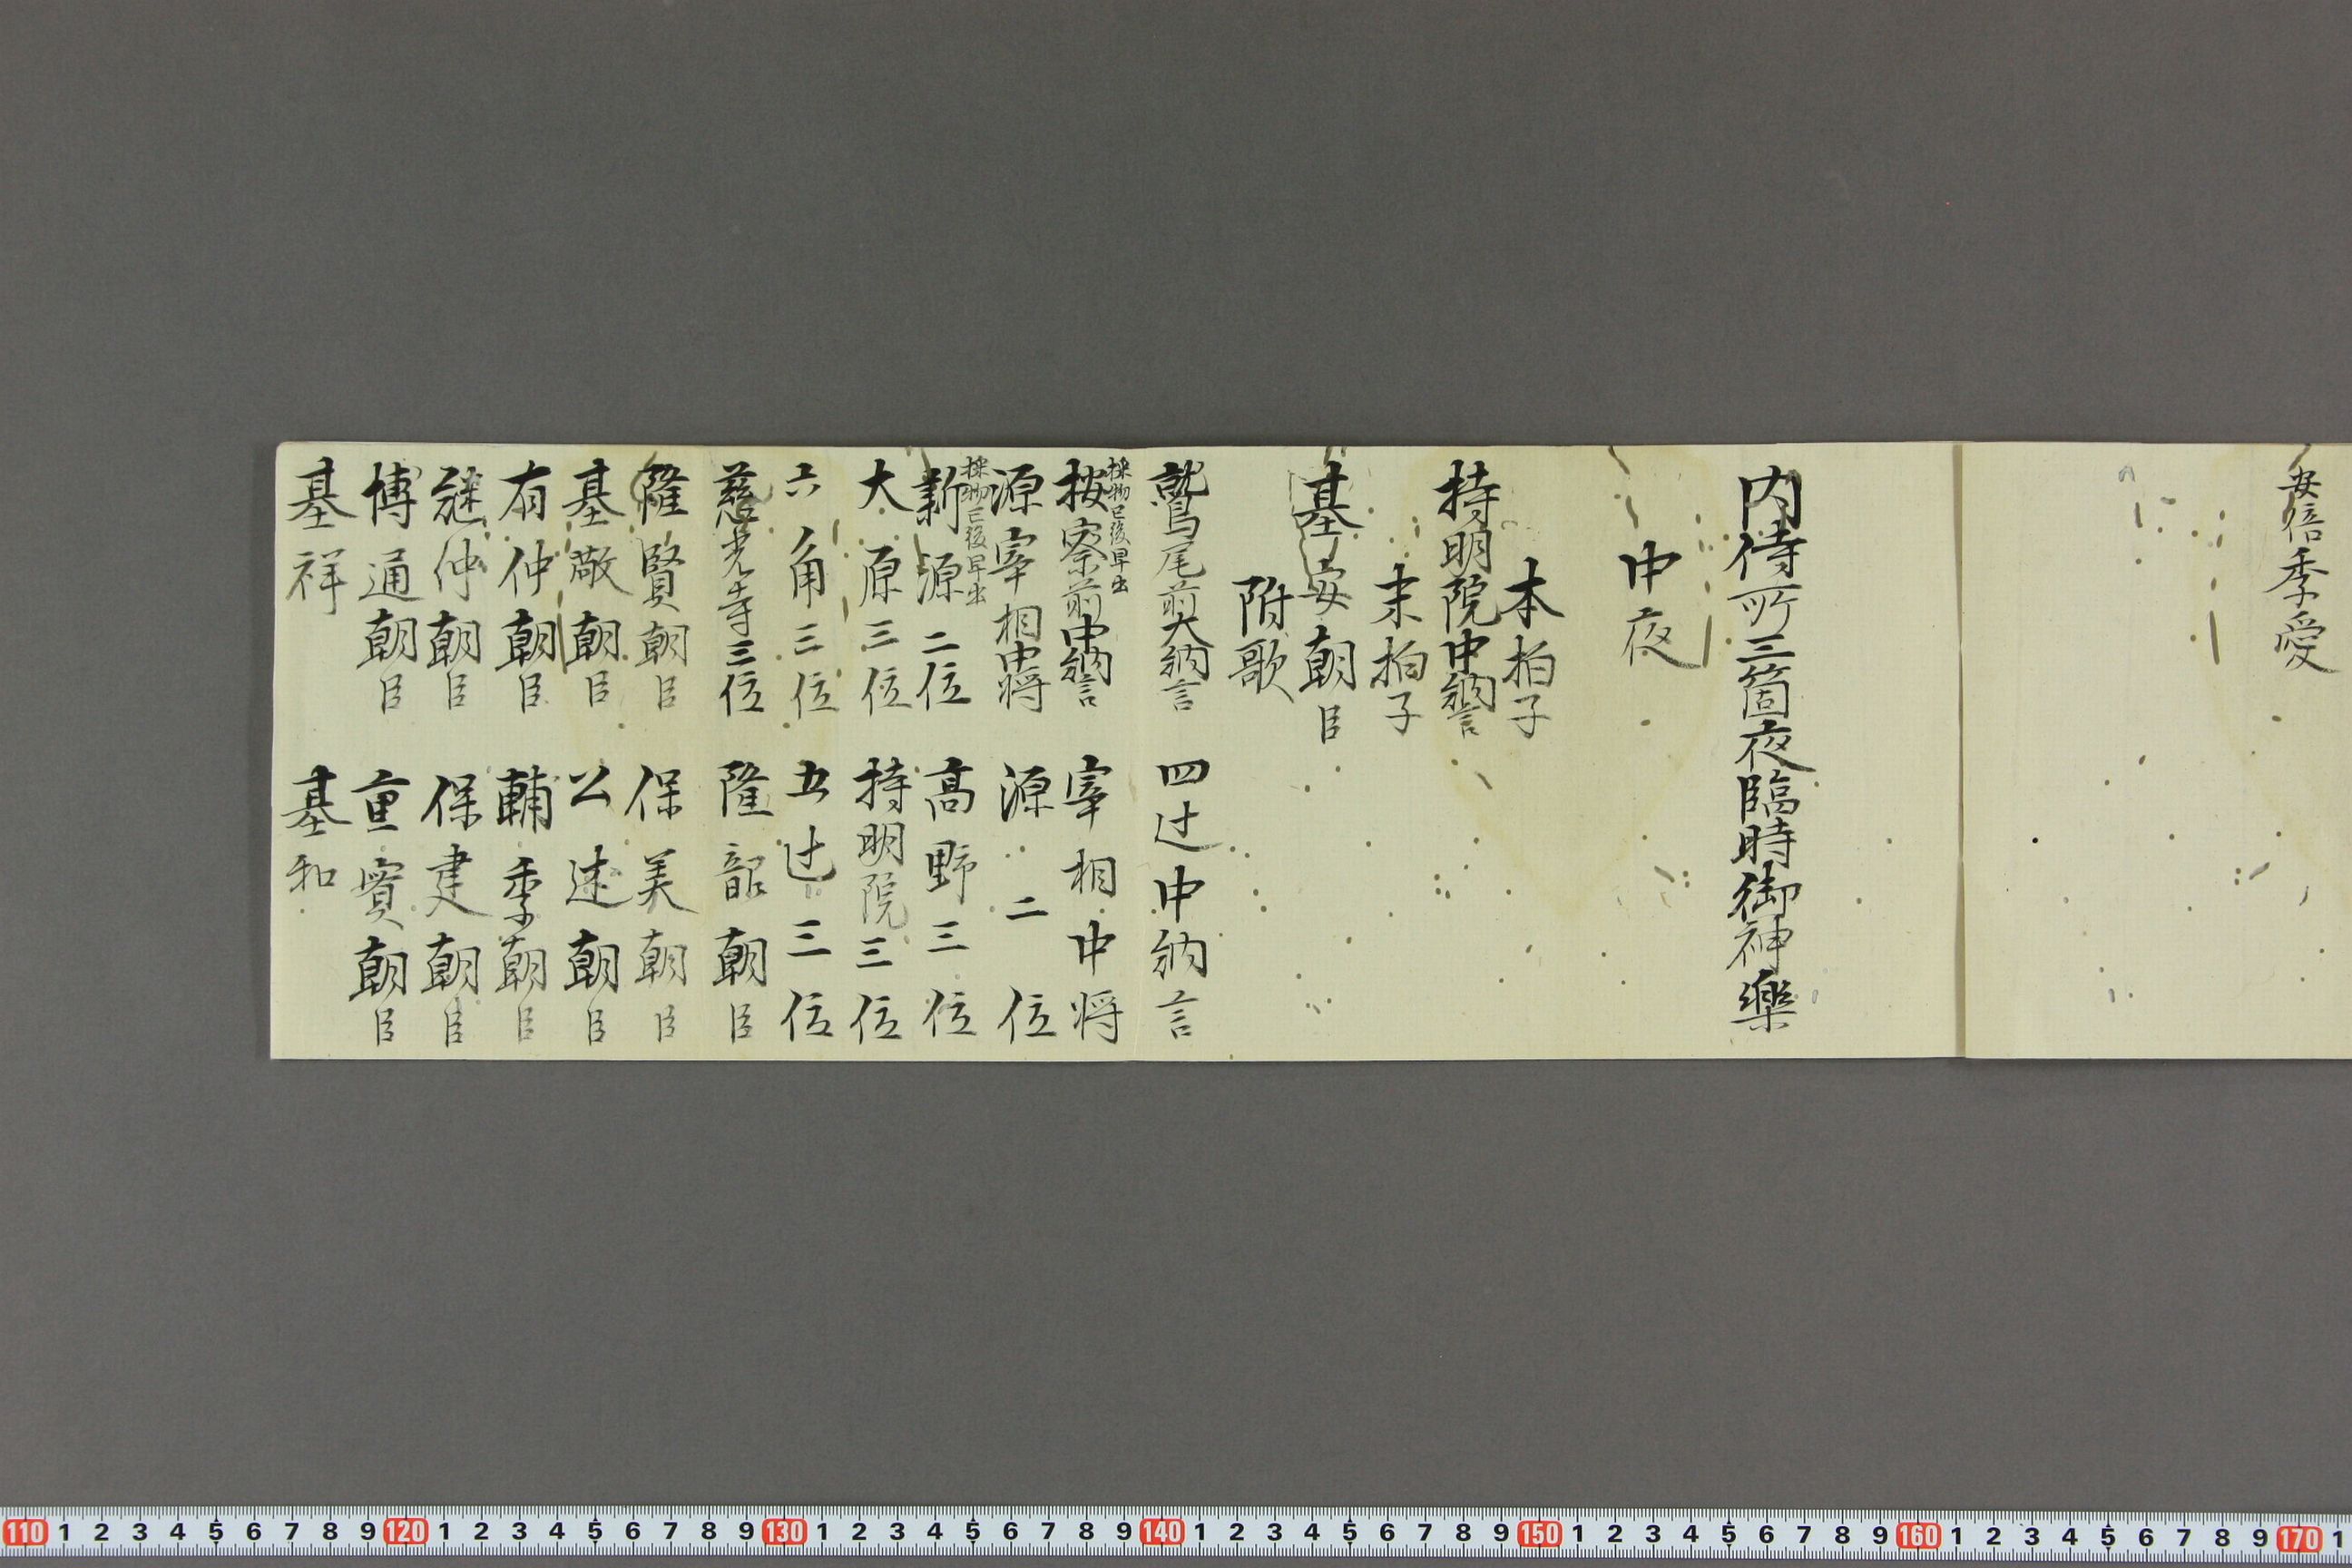 安倍季愛
内侍所三箇夜臨時御神樂
中夜
本拍子
持明院中納言
末拍子
基安朝臣
附歌
鷲尾前大納言　四辻中納言
採物已後早出
按察前中納言　宰相中将
源宰相中将　源二位
採物已後早出
新源二位　高野三位
大原三位　持明院三位
六角三位　五辻三位
慈光寺三位　隆韶朝臣
隆賢朝臣　保美朝臣
基敞朝臣　公述朝臣
有仲朝臣　輔季朝臣
継仲朝臣　保建朝臣
博通朝臣　重實朝臣
基祥　基和
110 1 2 3 4 5 6 7 8 9 120 1 2 3 4 5 6 7 8 9 130 1 2 3 4 5 6 7 8 9 140 1 2 3 4 5 6 7 8 9 150 1 2 3 4 5 6 7 8 9 160 1 2 3 4 5 6 7 8 9 170 1